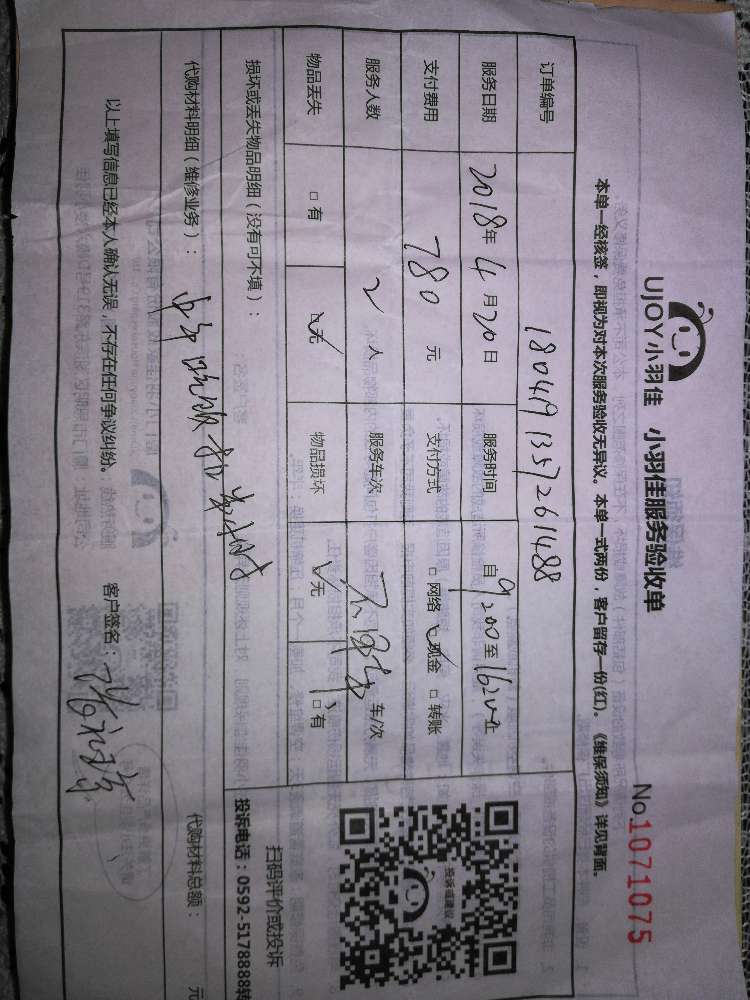 UJOY小羽佳 小羽佳服务验收单
No.1071075
本单一经核签，即视为对本次服务验收无异议。本单一式两份，客户留存一份(红)。《维保须知》详见背面。
订单编号 1804191357261488
服务日期 2018年4月20日 服务时间 自9:00至16:20止
支付费用 780元 支付方式 □网络 ☑现金 □转账
服务人数 2人 服务车次 车/次
物品丢失 □有 ☑无 物品损坏 ☑无 □有
损坏或丢失物品明细（没有可不填）：
代购材料明细（维修业务）：
代购材料总额： 元
以上填写信息已经本人确认无误，不存在任何争议纠纷。 客户签名：
投诉或建议
扫码评价或投诉
投诉电话：0592-5178888转